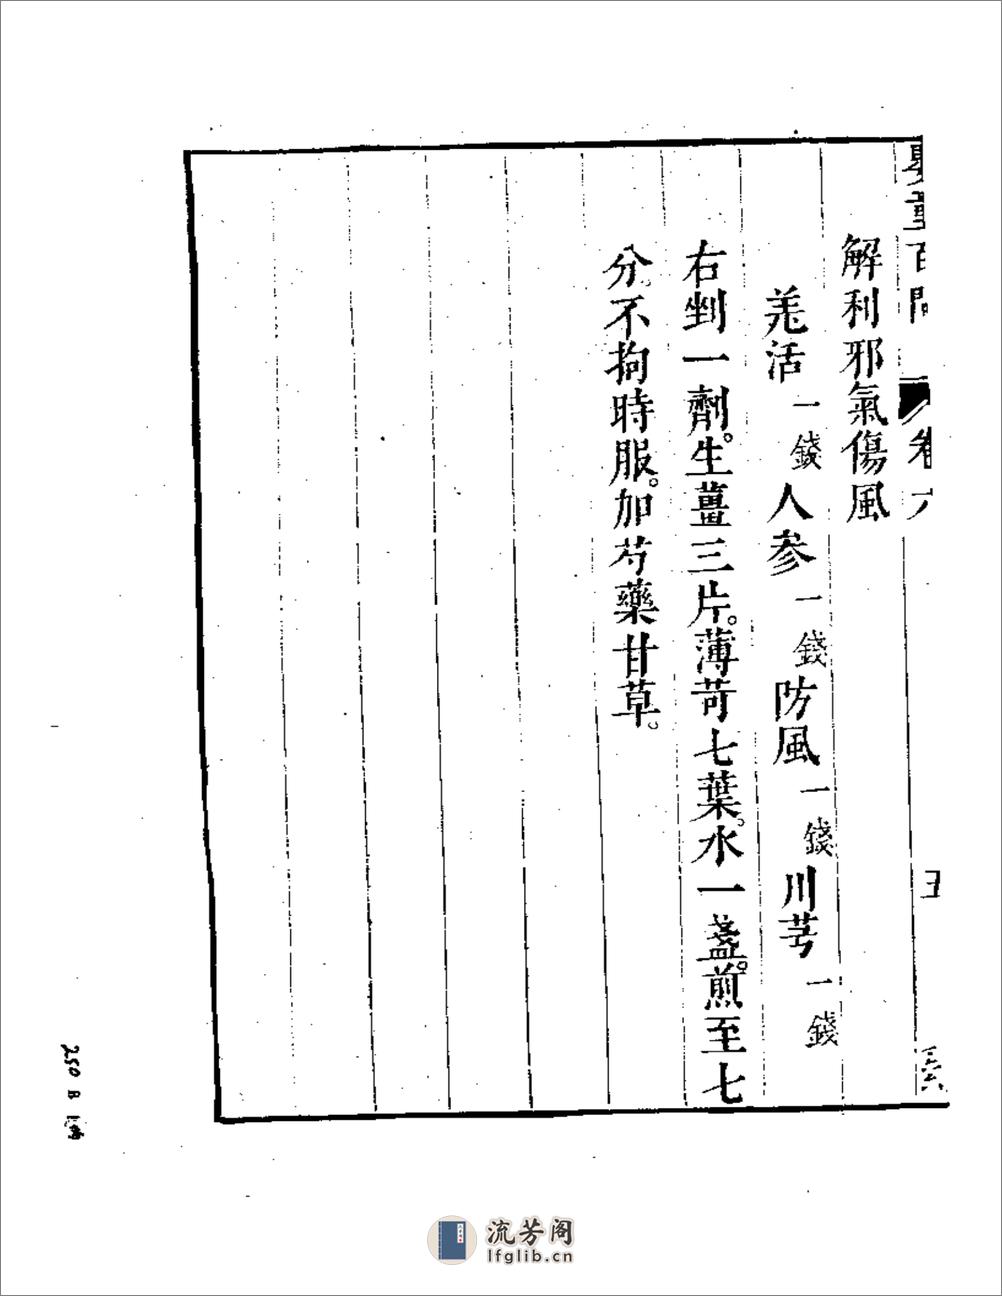 嬰童百問 卷六 五
解利邪氣傷風
羗活一錢人參一錢防風一錢川芎一錢
右剉一劑。生薑三片。薄苛七葉。水一盞。煎至七
分。不拘時服。加芍藥甘草。
250 B
流芳阁
lfglib.cn